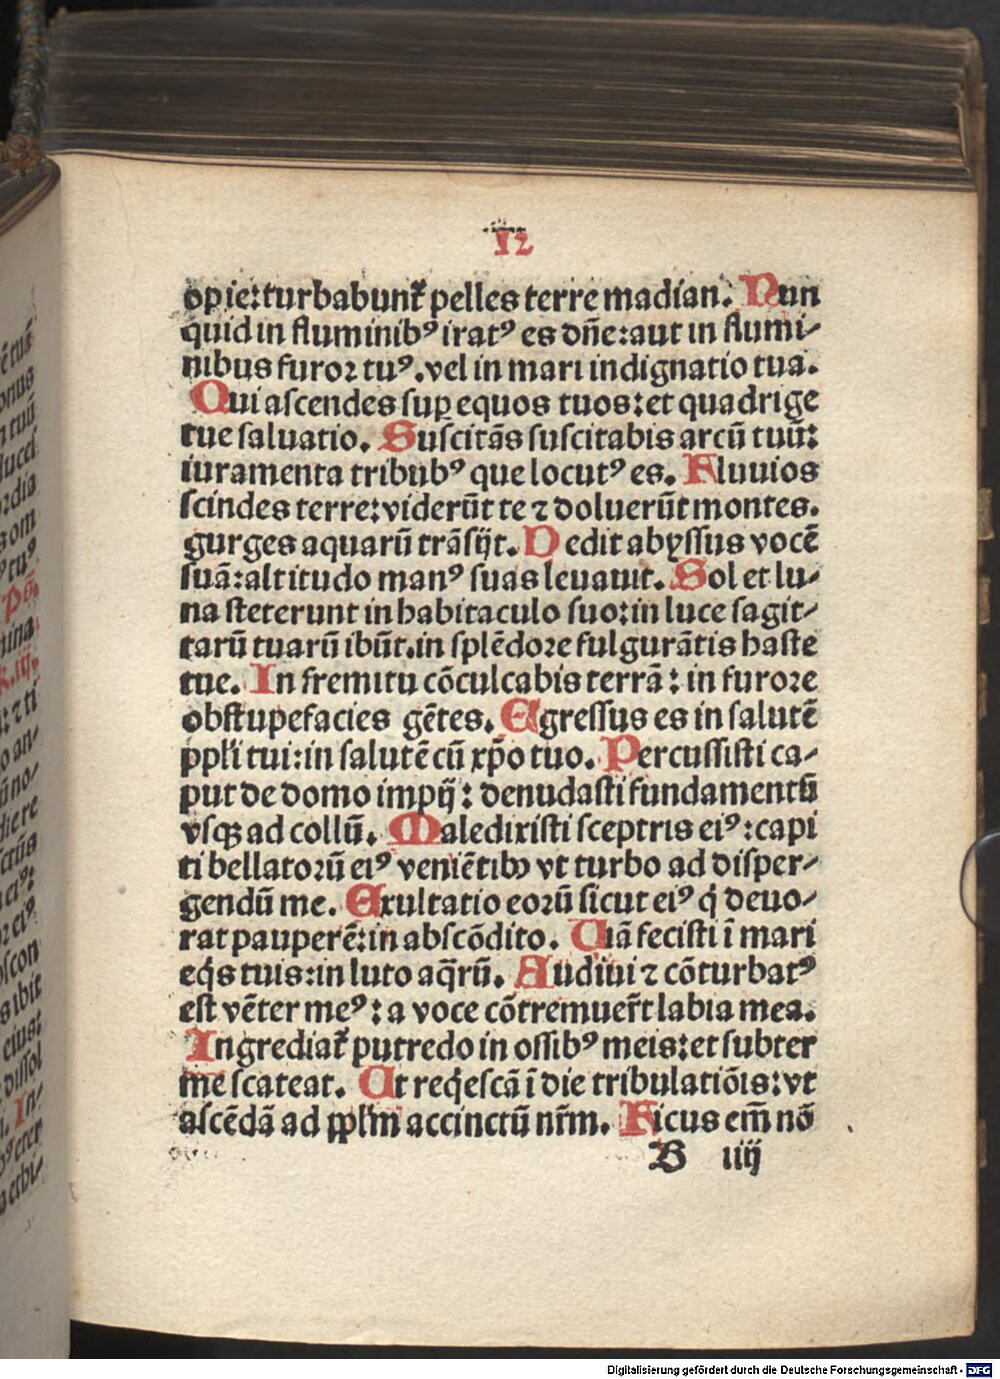 12
opie: turbabunt᷑ pelles terre madian. Nun
quid in fluminibꝰ iratꝰ es dn̄e: aut in flumi-
nibus furoꝛ tuꝰ. vel in mari indignatio tua.
Qui ascendes suꝑ equos tuos: et quadrige
tue saluatio. Suscitās suscitabis arcū tuū:
iuramenta tribubꝰ que locutꝰ es. Fluuios
scindes terre: viderūt te ⁊ doluerūt montes.
gurges aquarū trāsijt. Dedit abyssus vocē
suā: altitudo manꝰ suas leuauit. Sol et lu-
na steterunt in habitaculo suo: in luce sagit-
tarū tuarū ibūt. in splēdoꝛe fulgurātis haste
tue. In fremitu cōculcabis terrā: in furoꝛe
obstupefacies gētes. Egressus es in salutē
ppl̓i tui: in salutē cū xp̄o tuo. Percussisti ca-
put de domo impij: denudasti fundamentū
vsqꝫ ad collū. Maledixisti sceptris eiꝰ: capi
ti bellatoꝛū eiꝰ veniētibꝫ vt turbo ad disper-
gendū me. Exultatio eoꝛū sicut eiꝰ q̇ deuo-
rat pauperē: in abscōdito. Uiā fecisti ī mari
eq̇s tuis: in luto aq̄rū. Audiui ⁊ cōturbatꝰ
est vēter meꝰ: a voce cōtremuer̄t labia mea.
Ingrediat᷑ putredo in ossibꝰ meis: et subter
me scateat. Ut req̇escā ī die tribulatiōis: vt
ascēdā ad ppl̄m accinctū nr̄m. Ficus em̄ nō
B iiij
Digitalisierung gefördert durch die Deutsche Forschungsgemeinschaft - DFG